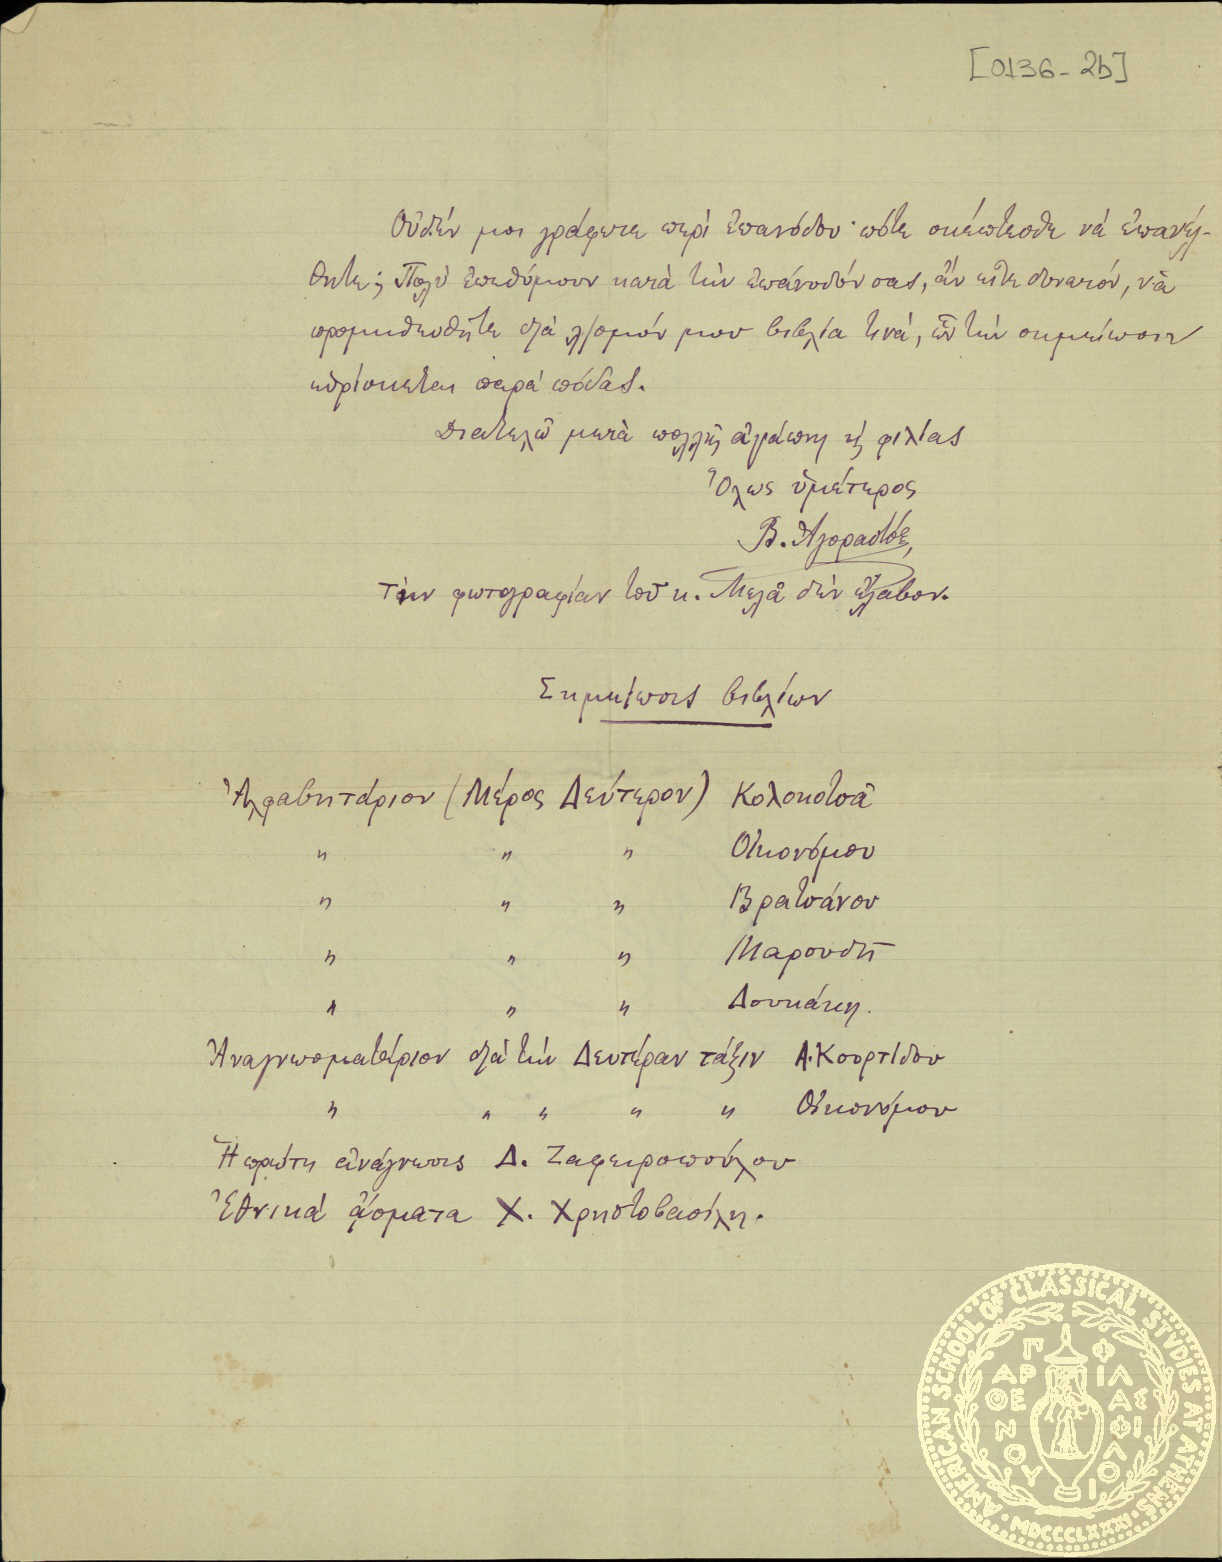 [0136-2b]
Οὐδέν μοι γράφετε περὶ ἐπανόδου· πότε σκέπτεσθε νά ἐπανέλ-
θητε; Πολύ ἐπεθύμουν κατὰ τὴν ἐπάνοδόν σας, ἄν εἶτε δυνατόν, νὰ
προμηθευθῆτε διὰ λ/σμόν μου βιβλία τινά, ὧν τὴν σημείωσιν
εὑρίσκεται παρά πόδας.
Διατελῶ μετὰ πολλῆς ἀγάπης κ φιλίας
Ὅλως ὑμέτερος
Β. Ἀγοραστός,
Τὴν φωτογραφίαν τοῦ κ. Μελᾶ δὲν ἔλαβον.
Σημείωσις βιβλίων
Ἀλφαβητάριον (Μέρος Δεύτερον) Κολοκοτσᾶ
" " " Οἰκονόμου
" " " Βρατσάνου
" " " Μαρουδῆ
" " " Δουκάκη.
Ἀναγνωσματάριον διὰ τὴν Δευτέραν τάξιν Α. Κουρτίδου
" " " " " Οἰκονόμου
Ἡ πρώτη ἀνάγνωσις Δ. Ζαφειροπούλου
Ἐθνικά ᾄσματα Χ. Χρηστοβασίλη.
AMERICAN SCHOOL OF CLASSICAL STVDIES AT ATHENS
MDCCCLXXXI
ΠΑΡΘΕΝΟΥ ΦΙΛΑΣ ΦΙΛΙΟ